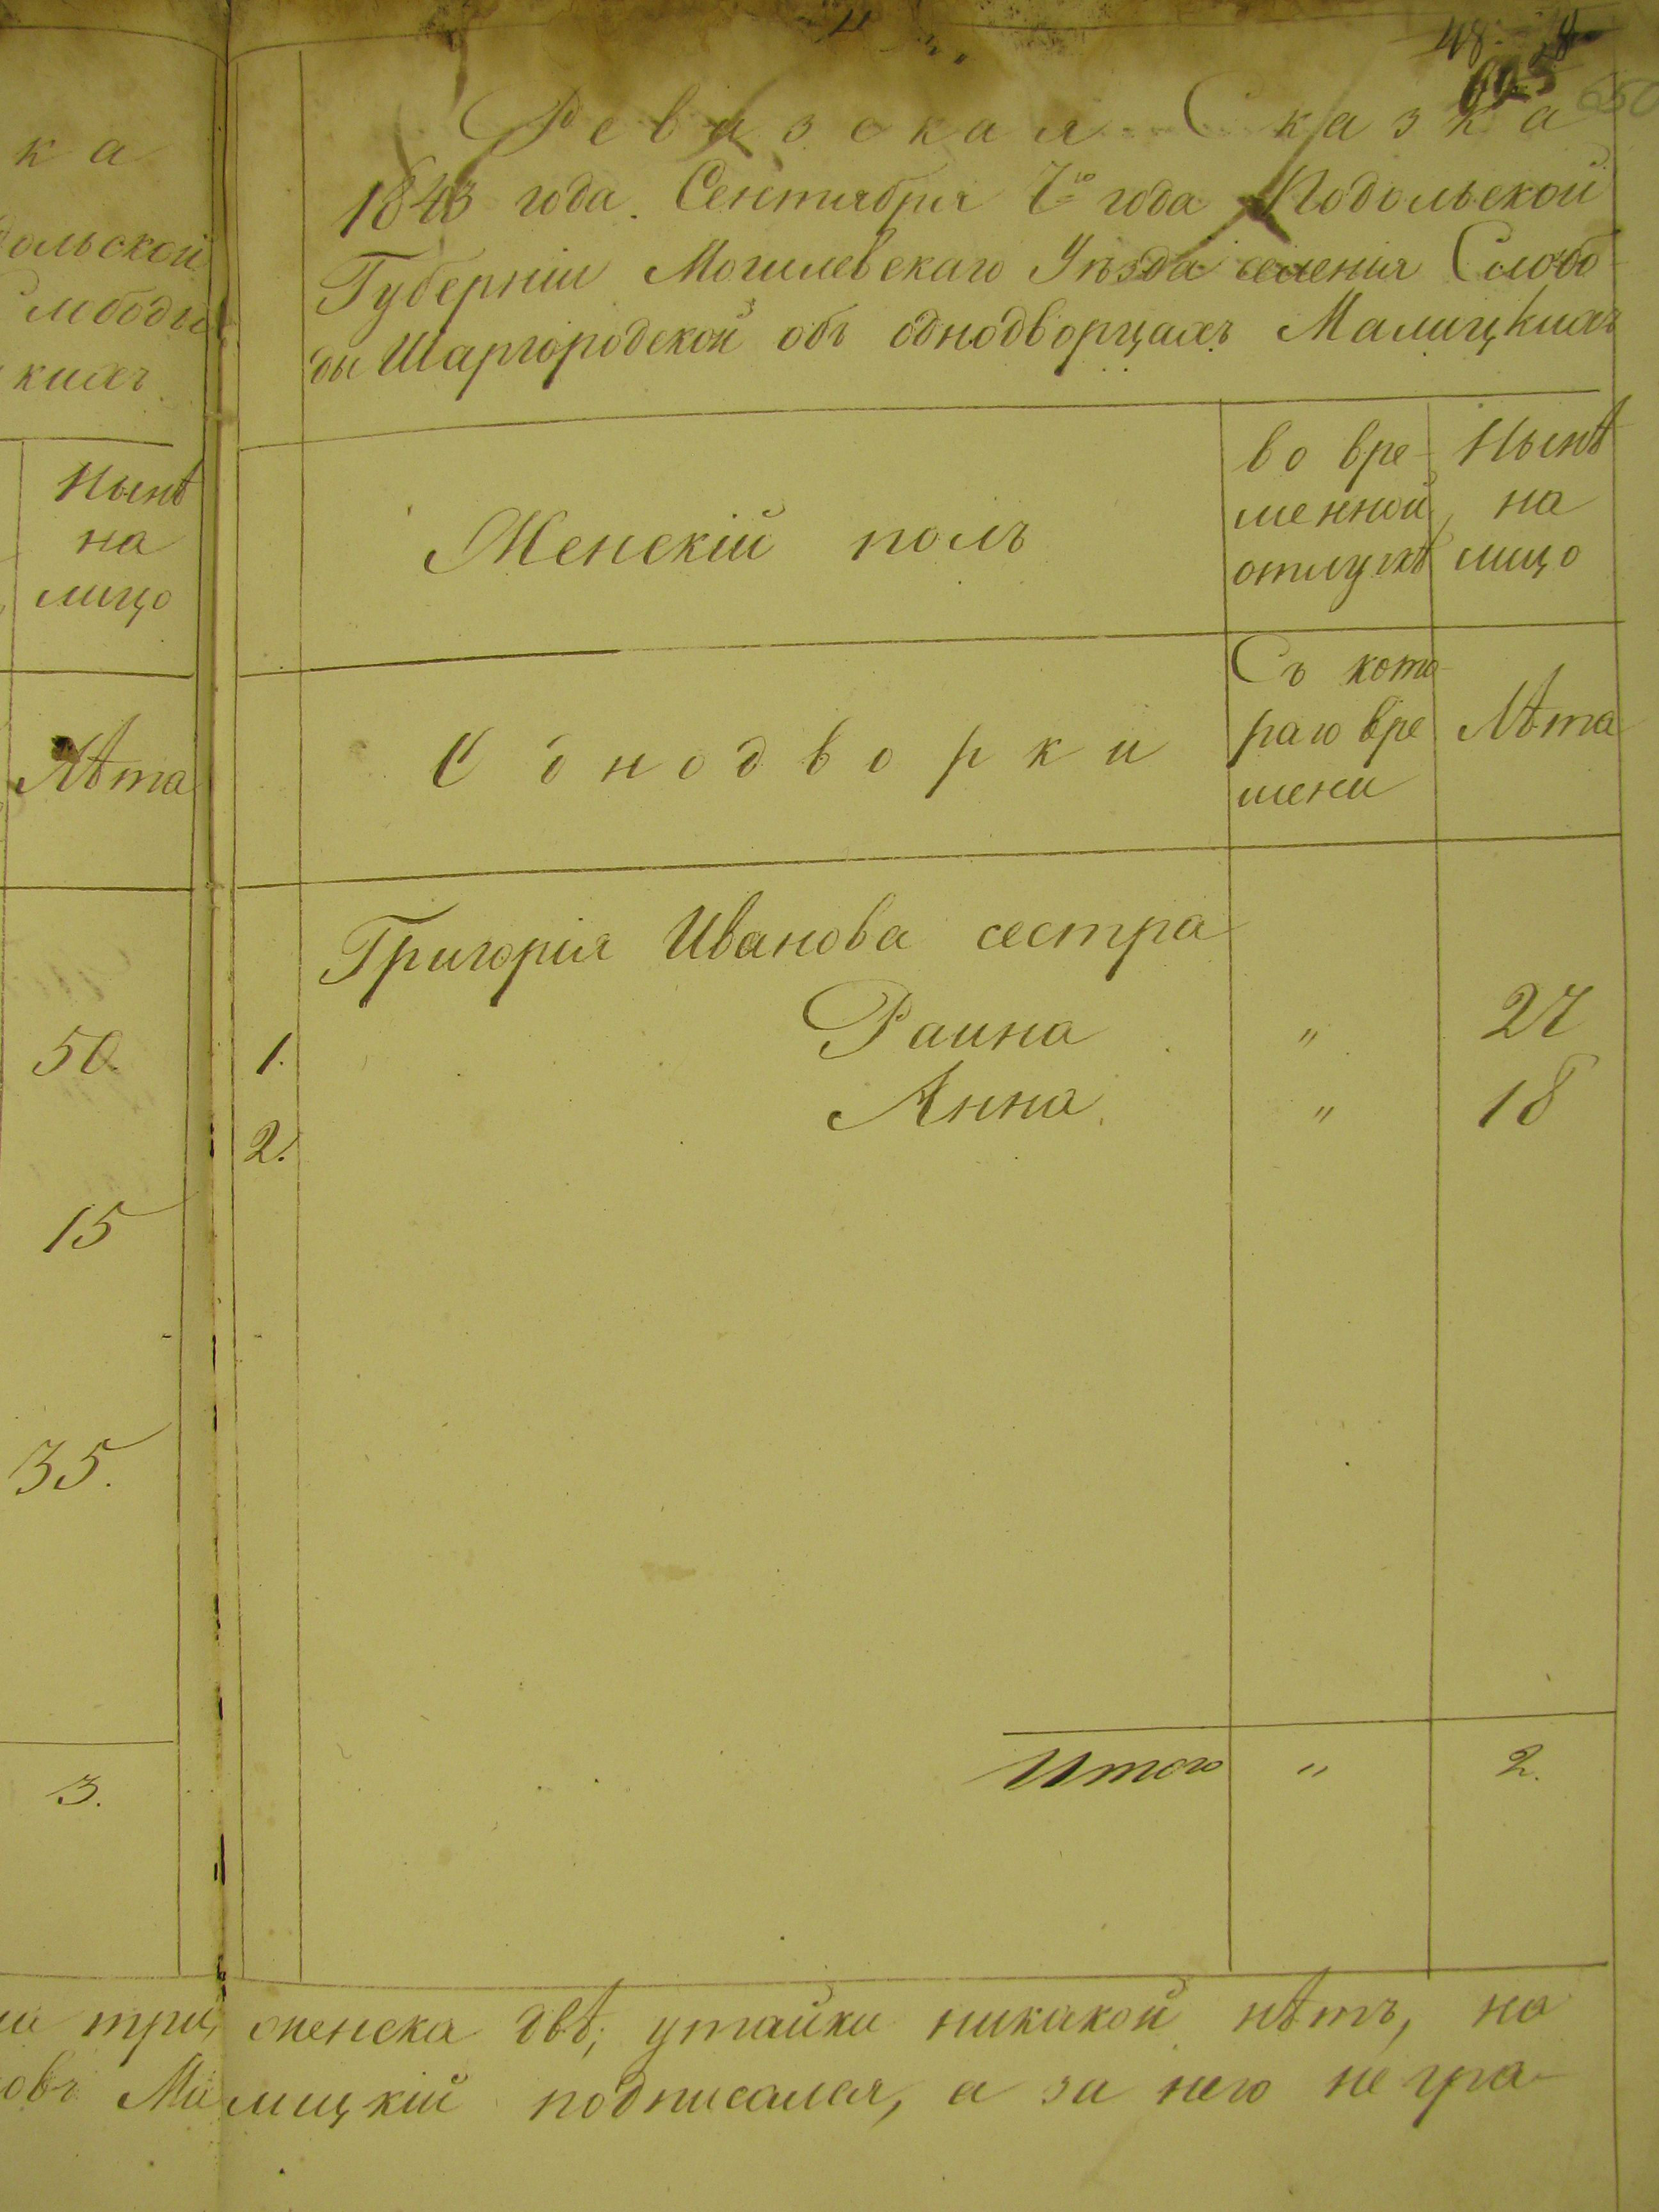 ка
ольской
лободы
кихъ
Нынѣ
на
лицо
Лѣта
50.
15
35.
3.
три,
овъ Ма
48
650
Ревизская Сказка
1843 года Сентября 7го года Подольской
Губерніи Могилевскаго Уѣзда селенія Слобо-
ды Шаргородской объ однодворцахъ Малицкихъ
Женскій полъ
во вре-
менной
отлучкѣ
Нынѣ
на
лицо
Однодворки
Съ кото-
раго вре
мени
Лѣта
Григорія Иванова сестра
1. Раина " 27
2. Анна " 18
Итого " 2.
женска двѣ, утайки никакой нѣтъ, на
лицкій подписался, а за него негра-